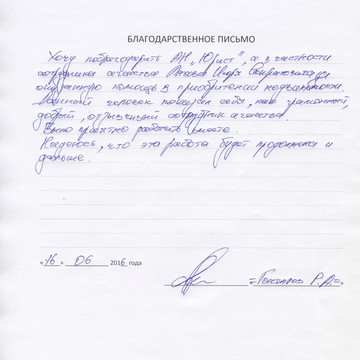 БЛАГОДАРСТВЕННОЕ ПИСЬМО
Хочу поблагодарить АН "Юрист", а в частности
сотрудника агенства Игоря за
оказанную помощь в приобретении недвижимости.
Данный человек показал себя, как грамотный,
добрый, отзывчивый сотрудник агенства.
Было приятно работать вместе.
Надеюсь, что эта работа будет продолжена и
дальше.
«16» 06 2016 года
/Гончаров Р.А./